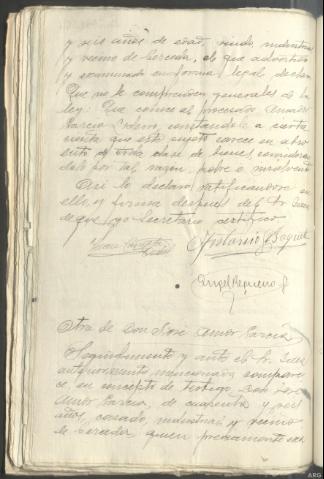 y seis años de edad, viudo, industrial
y vecino de Cercedá, el que advertido
y examinado en forma legal declara:
Que no le comprenden generales de la
ley: Que conoce al procesado Amador
García Otero, constandole a ciencia
cierta que este sujeto carece en abso
luto de toda clase de bienes, consideran
dole por tal razón, pobre e insolvente
Asi lo declara ratificandose en
ello, y firma despues del Sr. Juez
de que yo Secretario certifico
Antonio Baquer
Angel Requeno
Otra de Don José Amor García
Seguidamente y ante el Sr. Juez
anteriormente mencionado comparé
ce, en concepto de testigo, Don José
Amor García, de cuarenta y seis
años, casado, industrial y vecino
de Cercedá, quien previamente